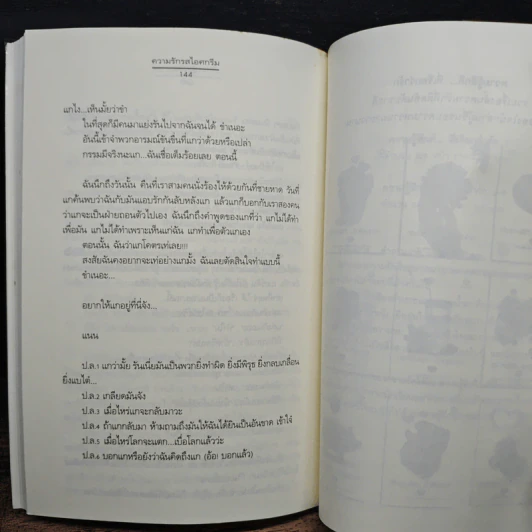 ความรักรสไอศกรีม
144
แกไง...เห็นมั้ยว่าช้า
ในที่สุดก็มีคนมาแย่งรันไปจากฉันจนได้ ช้าเนอะ
อันนี้เข้าจำพวกอารมณ์ขันขื่นที่แกว่าด้วยหรือเปล่า
กรรมมีจริงนะแก...ฉันเชื่อเต็มร้อยเลย ตอนนี้
ฉันนึกถึงวันนั้น คืนที่เราสามคนนั่งร้องไห้ด้วยกันที่ชายหาด วันที่
แกค้นพบว่าฉันกับมันแอบรักกันลับหลังแก แล้วแกก็บอกกับเราสองคน
ว่าแกจะเป็นฝ่ายถอนตัวไปเอง ฉันนึกถึงคำพูดของแกที่ว่า แกไม่ได้ทำ
เพื่อมัน แกไม่ได้ทำเพราะเห็นแก่ฉัน แกทำเพื่อตัวแกเอง
ตอนนั้น ฉันว่าแกโคตรเท่เลย!!!
สงสัยฉันคงอยากจะเท่อย่างแกมั้ง ฉันเลยตัดสินใจทำแบบนี้
ช้าเนอะ...
อยากให้แกอยู่ที่นี่จัง...
แนน
ป.ล.1 แกว่ามั้ย รันเนี่ยมันเป็นพวกยิ่งทำผิด ยิ่งมีพิรุธ ยิ่งกลบเกลื่อน
ยิ่งแบไต๋...
ป.ล.2 เกลียดมันจัง
ป.ล.3 เมื่อไหร่แกจะกลับมาวะ
ป.ล.4 ถ้าแกกลับมา ห้ามถามถึงมันให้ฉันได้ยินเป็นอันขาด เข้าใจ๋
ป.ล.5 เมื่อไหร่โลกจะแตก...เบื่อโลกแล้วว่ะ
ป.ล.6 บอกแกหรือยังว่าฉันคิดถึงแก (อ้อ! บอกแล้ว)